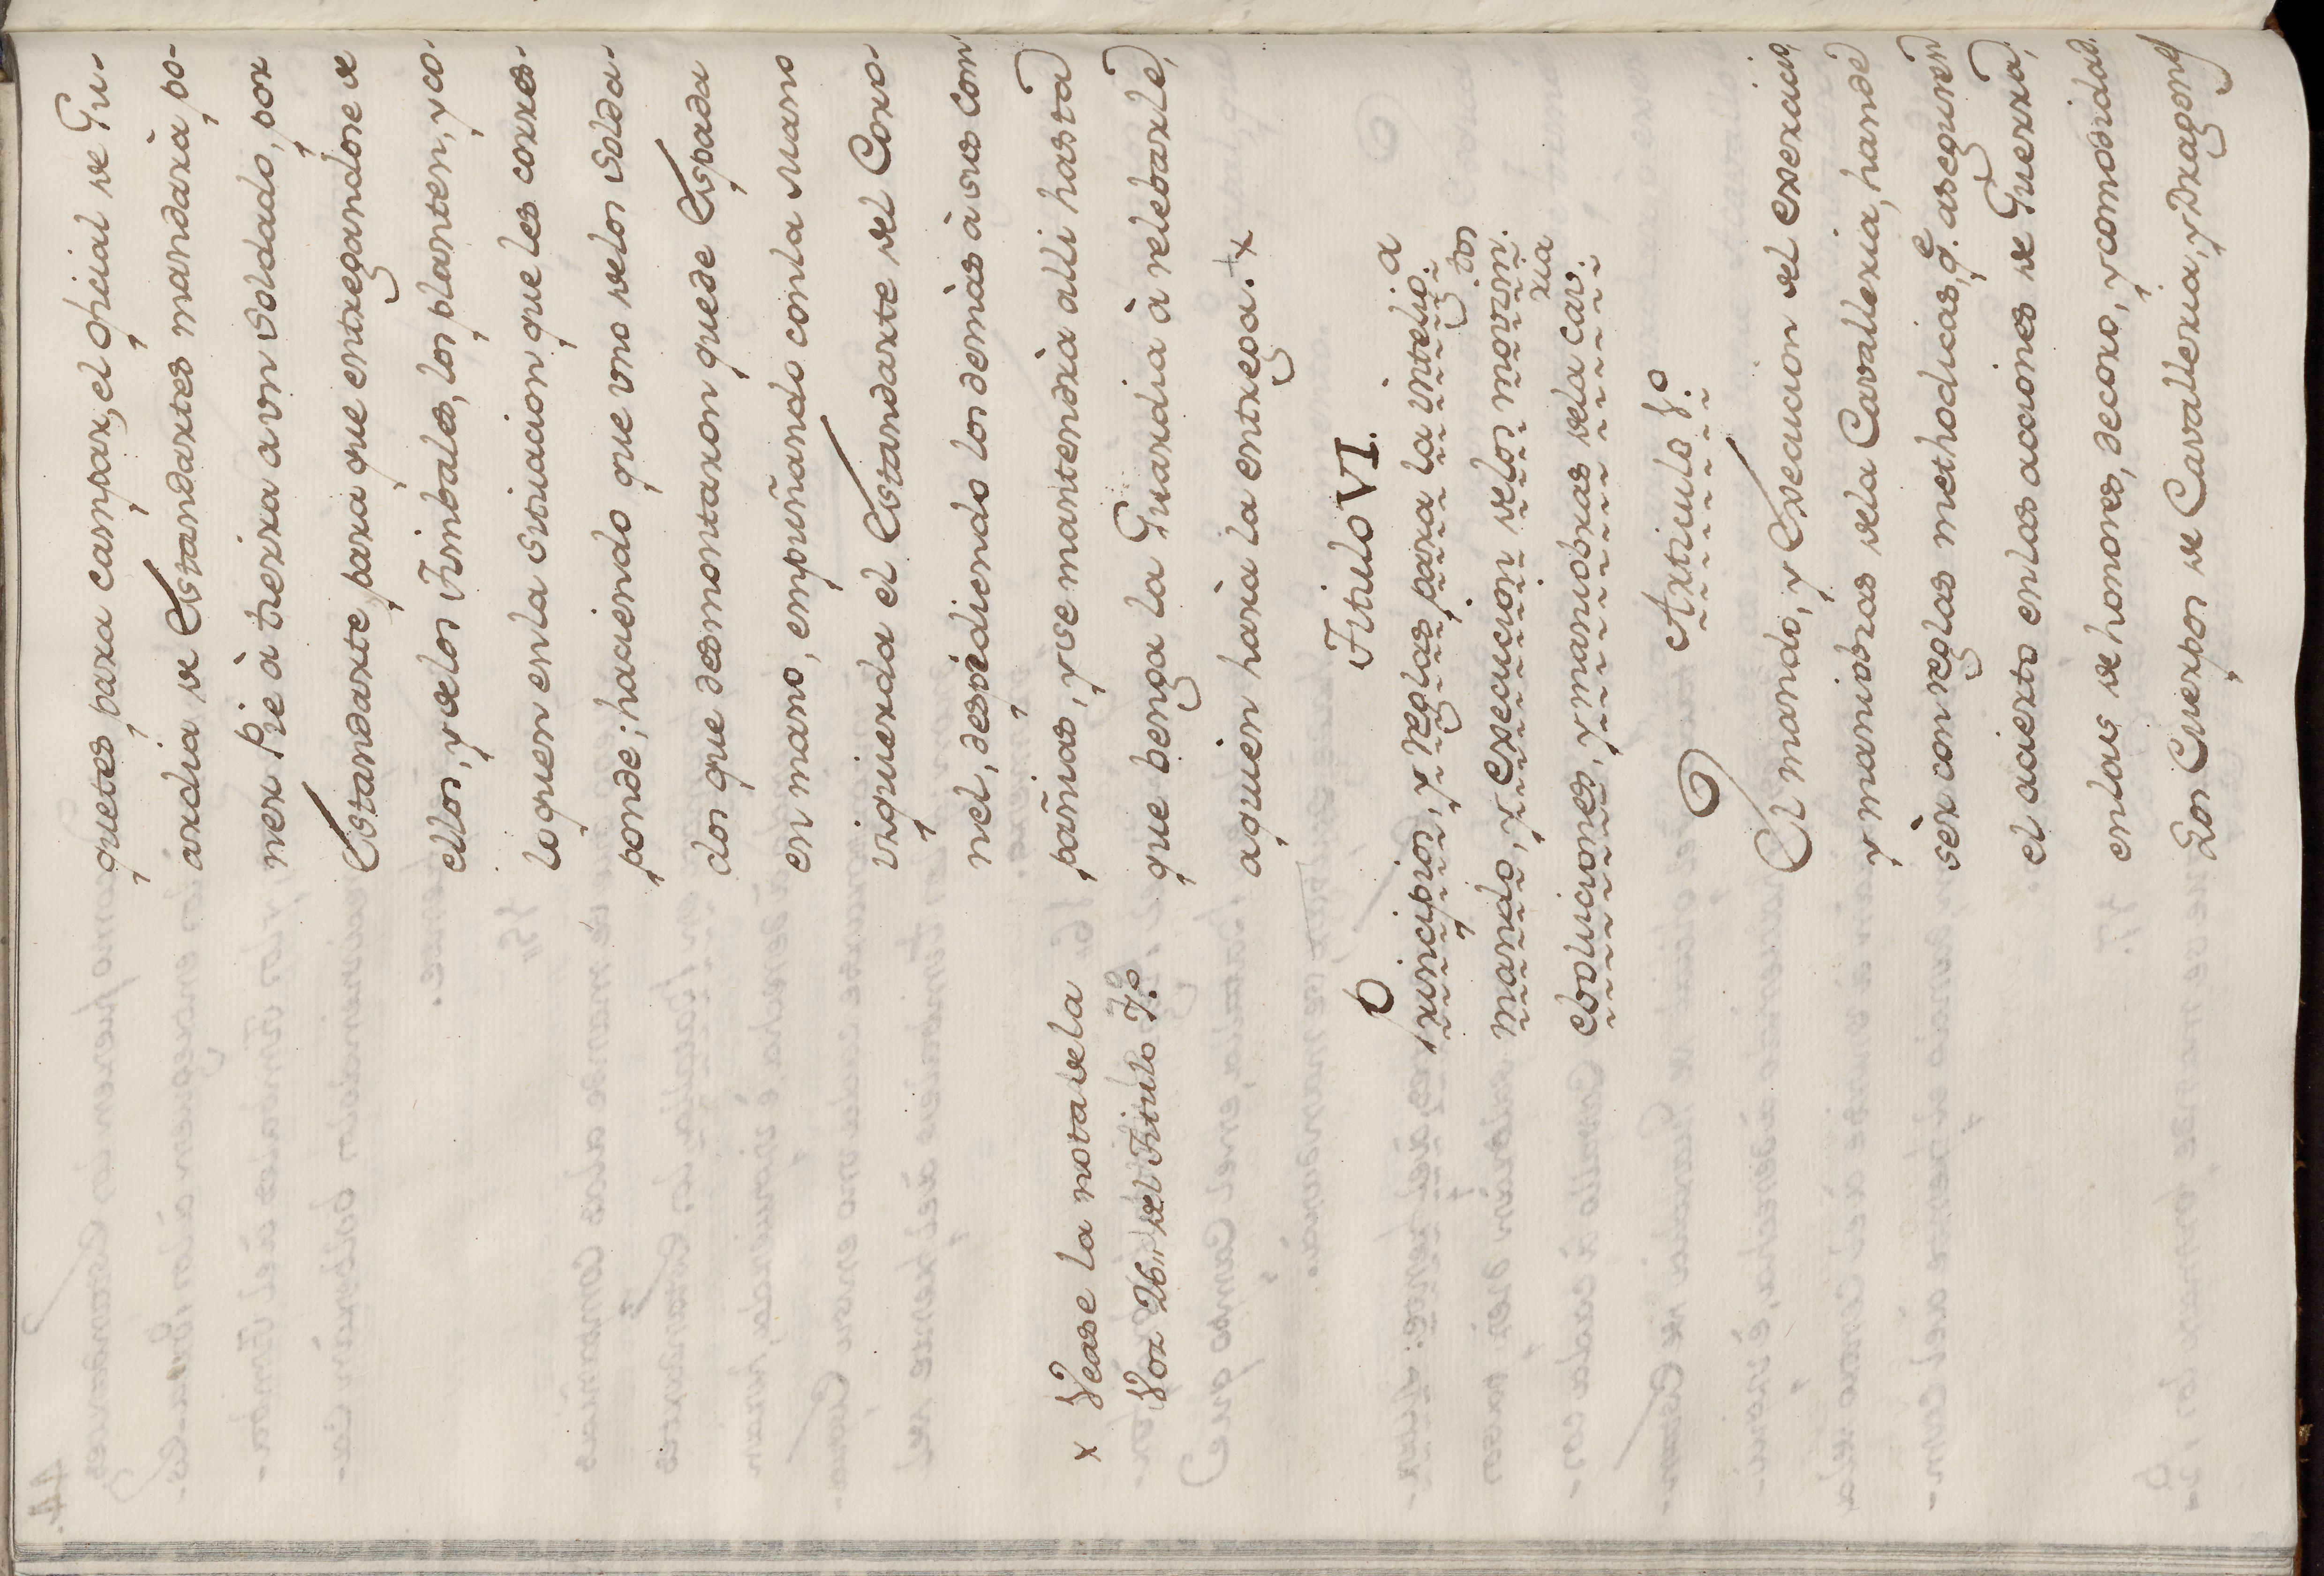 quetes para campar, el oficial de Gu-
ardia de Estandartes mandarà po-
ner Pie à tierra a vn Soldado, por
Estandarte para que entregandose de
ellos, y delos Timbales, los planten, y co-
loquen enla situacion que les corres-
ponde; haciendo que vno delos Solda-
dos que desmontaron quede Espada
en mano, empuñando conla Mano
izquierda el Estandarte del Coro-
nel, despidiendo los demàs à sus Com
pañias, y se mantendrà alli hasta
que benga la Guardia à relebarle,
aquien harà la entrega. x
x Vease la nota dela
Voz 26,, del Titulo 7.º
Titulo VI.
Principios, y reglas para la intelig.ª
mando, y execucion delos movim.tos
eboluciones, y maniobras dela Cav.ria
Articulo 1.º
El mando, y Execucion del exercicio,
y maniobras dela Cavalleria, hande
sèr con reglas methodicas, q.e aseguren
el acierto enlas acciones de Guerra,
enlas de honores, decoro, y comosidad.
Los Cuerpos de Cavalleria, y Dragones